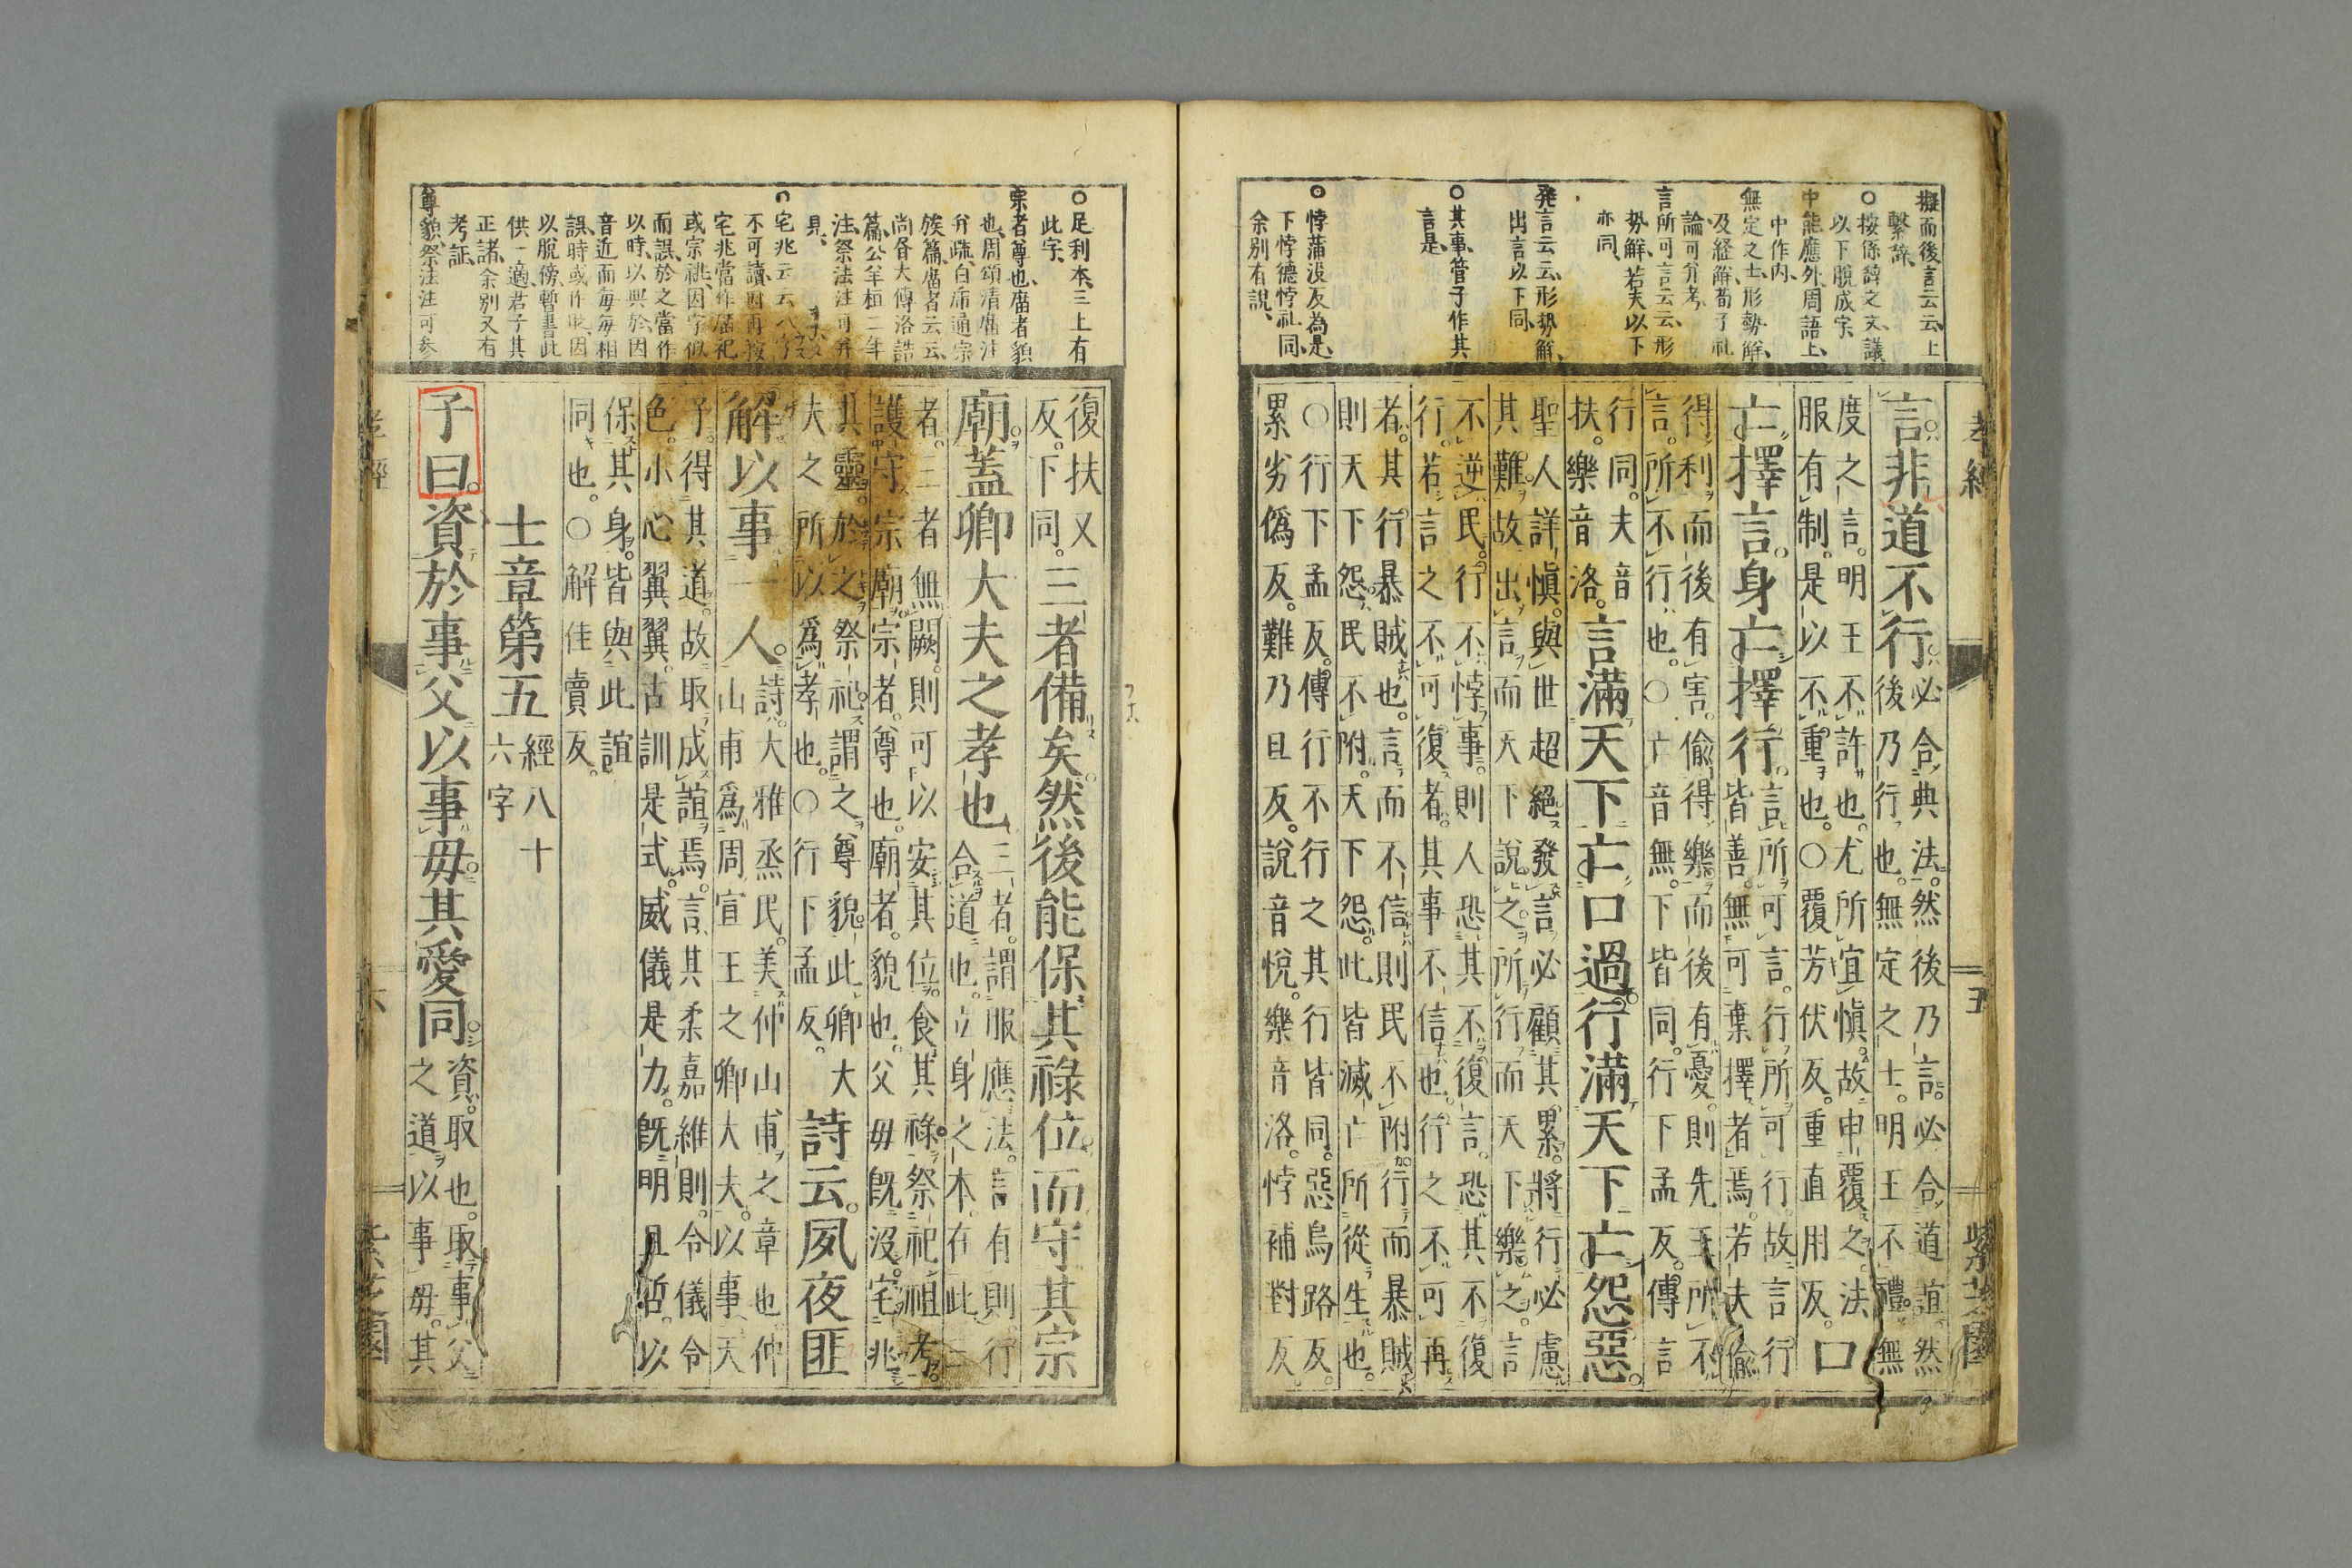 孝經
五
紫芝園
擬而後言云云上
繫辞
○按係辞之文議
以下脫成字
中能應外周語上
中作内
無定之士形勢解
及経解荀子礼
論可并考
言所可言云云形
勢解若夫以下
亦同
発言云云形勢解
出言以下同
○其事管子作其
言是
○悖蒲没反為是
下悖德悖礼同
余別有說
言非道不行必合典法然後乃言必合道誼然
後乃行也無定之士明王不禮無
度之言明王不許也尤所宜愼故申覆之法
服有制是以不重也○覆芳伏反重直用反口
亡擇言身亡擇行言所可言行所可行故言行
皆善無可棄擇者焉若夫偷
得利而後有害偷得樂而後有憂則先王所不
言所不行也○亡音無下皆同行下孟反傳言
行同夫音
扶樂音洛言滿天下亡口過行滿天下亡怨惡
聖人詳愼與世超絕發言必顧其累將行必慮
其難故出言而天下說之所行而天下樂之言
不逆民行不悖事則人恐其不復言恐其不復
行若言之不可復者其事不信也行之不可再
者其行暴賊也言而不信則民不附行而暴賊
則天下怨民不附天下怨此皆滅亡所從生也
○行下孟反傳行不行之其行皆同惡烏路反
累劣僞反難乃旦反說音悅樂音洛悖補對反
○足利本三上有
此字
宗者尊也庿者貌
也周頌清庿注
并疏白虎通宗
族篇庿者云云
尚各大傳洛誥
篇公羊桓二年
注祭法注可并
見
宅兆云云八字
不可讀因再按
宅兆當作庿祀
或宗祧因字似
而誤於之當作
以時以與於因
音近而每每相
誤時或作旹因
以脫傍暫書此
供一適君子其
正諸余別又有
考証
尊貌祭法注可参
復扶又
反下同三者備矣然後能保其祿位而守其宗
廟蓋卿大夫之孝也三者謂服應法言有則行
合道也立身之本在此三
者三者無闕則可以安其位食其祿祭祀祖考
護守宗廟宗者尊也廟者貌也父毋旣沒宅兆
其靈於之祭祀謂之尊貌此卿大
夫之所以爲孝也○行下孟反詩云夙夜匪
解以事一人詩大雅烝民美仲山甫之章也仲
山甫爲周宣王之卿大夫以事天
子得其道故取成誼焉言其柔嘉維則令儀令
色小心翼翼古訓是式威儀是力旣明且哲以
保其身皆與此誼
同也○解佳賣反
士章第五經八十
六字
子曰資於事父以事毋其愛同資取也取事父
之道以事毋其
孝經
六
紫芝園